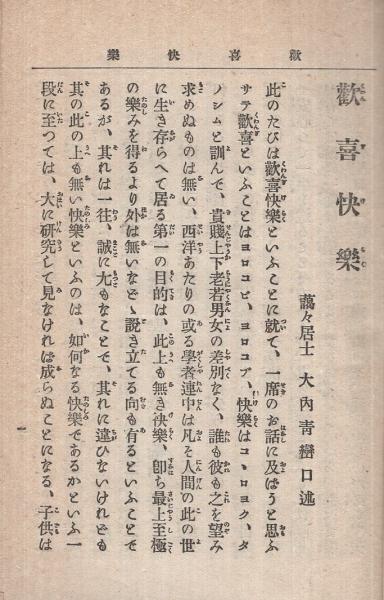 歡喜快樂
歡喜快樂
藹々居士 大內靑巒口述
此のたびは歡喜快樂といふことに就て、一席のお話に及ばうと思ふ
サテ歡喜といふことはヨロコビ、ヨロコブ、快樂はコヽロヨク、タ
ノシムと訓んで、貴賤上下老若男女の差別なく、誰も彼も之を望み
求めぬものは無い、西洋あたりの或る學者連中は凡そ人間の此の世
に生き存らへて居る第一の目的は、此上も無き快樂、卽ち最上至極
の樂みを得るより外は無いなどゝ說き立てる向も有るといふことで
あるが、其れは一往、誠に尤もなことで、其れに違ひないけれども
其の此の上も無い快樂といふのは、如何なる快樂であるかといふ一
段に至つては、大に硏究して見なければ成らぬことになる、子供は
一